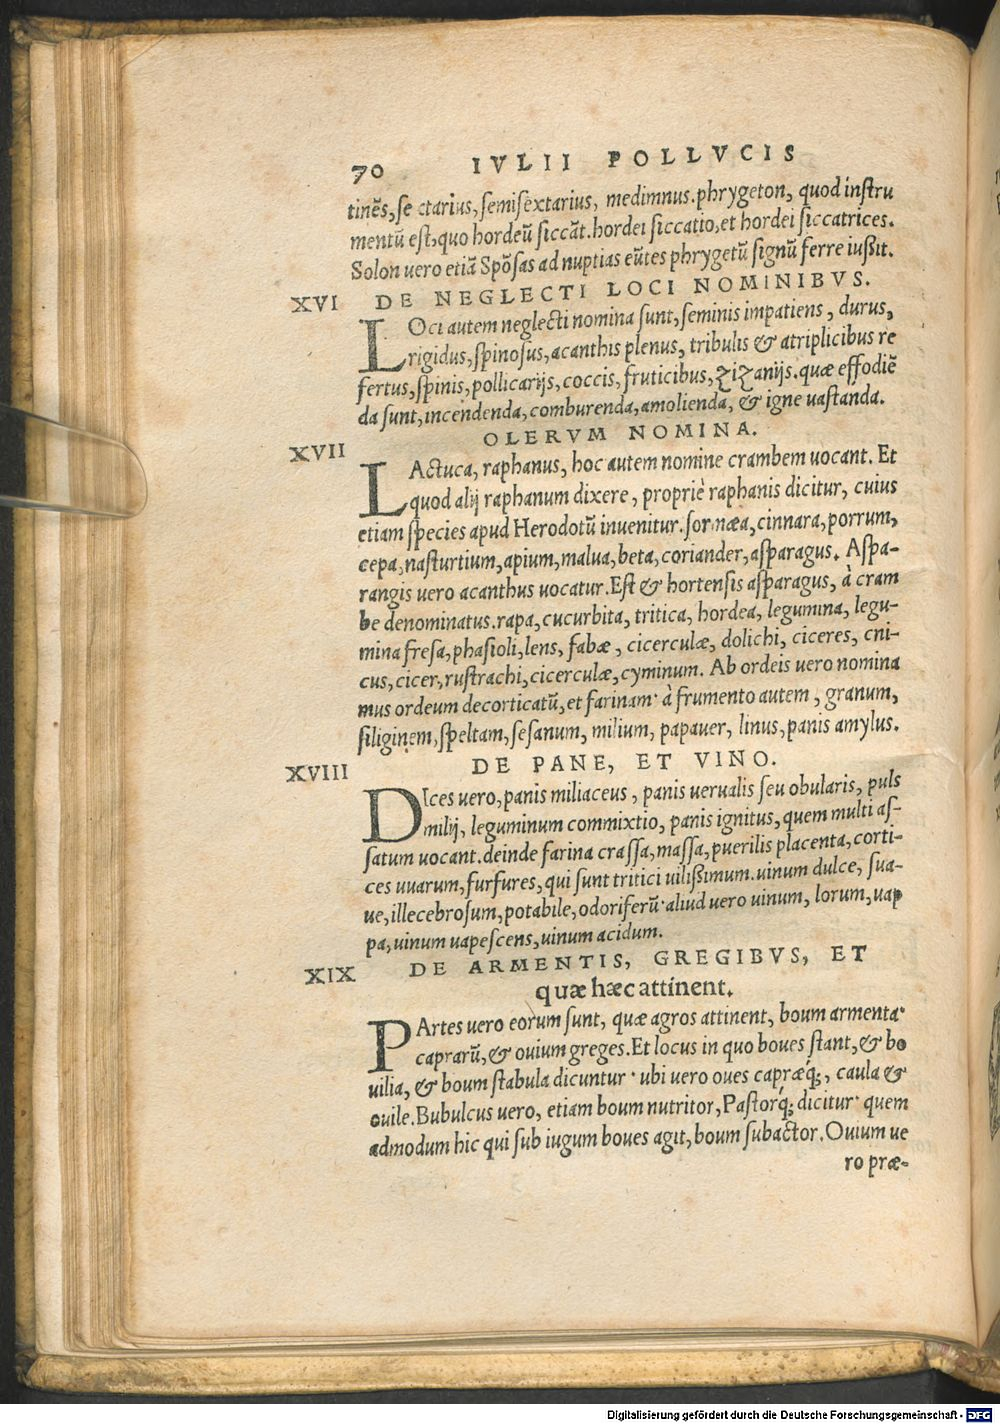 70 IVLII POLLVCIS
tinẽs, se ctarius, semisextarius, medimnus. phrygeton, quod instru
mentũ est, quo hordeũ siccãt. hordei siccatio, et hordei siccatrices.
Solon uero etiã Spõsas ad nuptias eũtes phrygetũ signũ ferre iußit.
XVI DE NEGLECTI LOCI NOMINIBVS.
LOci autem neglecti nomina sunt, seminis impatiens, durus,
rigidus, spinosus, acanthis plenus, tribulis & atriplicibus re
fertus, spinis, pollicarijs, coccis, fruticibus, zizanijs. quæ effodiẽ
da sunt, incendenda, comburenda, amolienda, & igne uastanda.
XVII OLERVM NOMINA.
LActuca, raphanus, hoc autem nomine crambem uocant. Et
quod alij raphanum dixere, propriè raphanis dicitur, cuius
etiam species apud Herodotũ inuenitur. sor næa, cinnara, porrum,
cepa, nasturtium, apium, malua, beta, coriander, asparagus. Aspa-
rangis uero acanthus uocatur. Est & hortensis asparagus, à cram
be denominatus. rapa, cucurbita, tritica, hordea, legumina, legu-
mina fresa, phasioli, lens, fabæ, cicerculæ, dolichi, ciceres, cni-
cus, cicer, rustrachi, cicerculæ, cyminum. Ab ordeis uero nomina
mus ordeum decorticatũ, et farinam· à frumento autem, granum,
siliginem, speltam, sesanum, milium, papauer, linus, panis amylus.
XVIII DE PANE, ET VINO.
DIces uero, panis miliaceus, panis uerualis seu obularis, puls
milij, leguminum commixtio, panis ignitus, quem multi as-
satum uocant. deinde farina crassa, massa, puerilis placenta, corti-
ces uuarum, furfures, qui sunt tritici uilißimum. uinum dulce, sua-
ue, illecebrosum, potabile, odoriferũ· aliud uero uinum, lorum, uap
pa, uinum uapescens, uinum acidum.
XIX DE ARMENTIS, GREGIBVS, ET
quæ hæc attinent.
PArtes uero eorum sunt, quæ agros attinent, boum armenta·
caprarũ, & ouium greges. Et locus in quo boues stant, & bo
uilia, & boum stabula dicuntur· ubi uero oues capræq́;, caula &
ouile. Bubulcus uero, etiam boum nutritor, Pastorq́; dicitur· quem
admodum hic qui sub iugum boues agit, boum subactor. Ouium ue
ro præ-
Digitalisierung gefördert durch die Deutsche Forschungsgemeinschaft - DFG